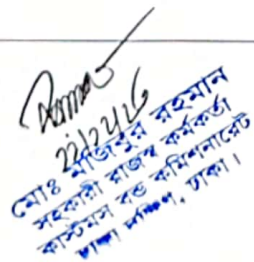 ২২/১২/২৬
মোঃ মজিবুর রহমান
সহকারী রাজস্ব কর্মকর্তা
কাস্টমস বন্ড কমিশনারেট
ঢাকা দক্ষিণ, ঢাকা।